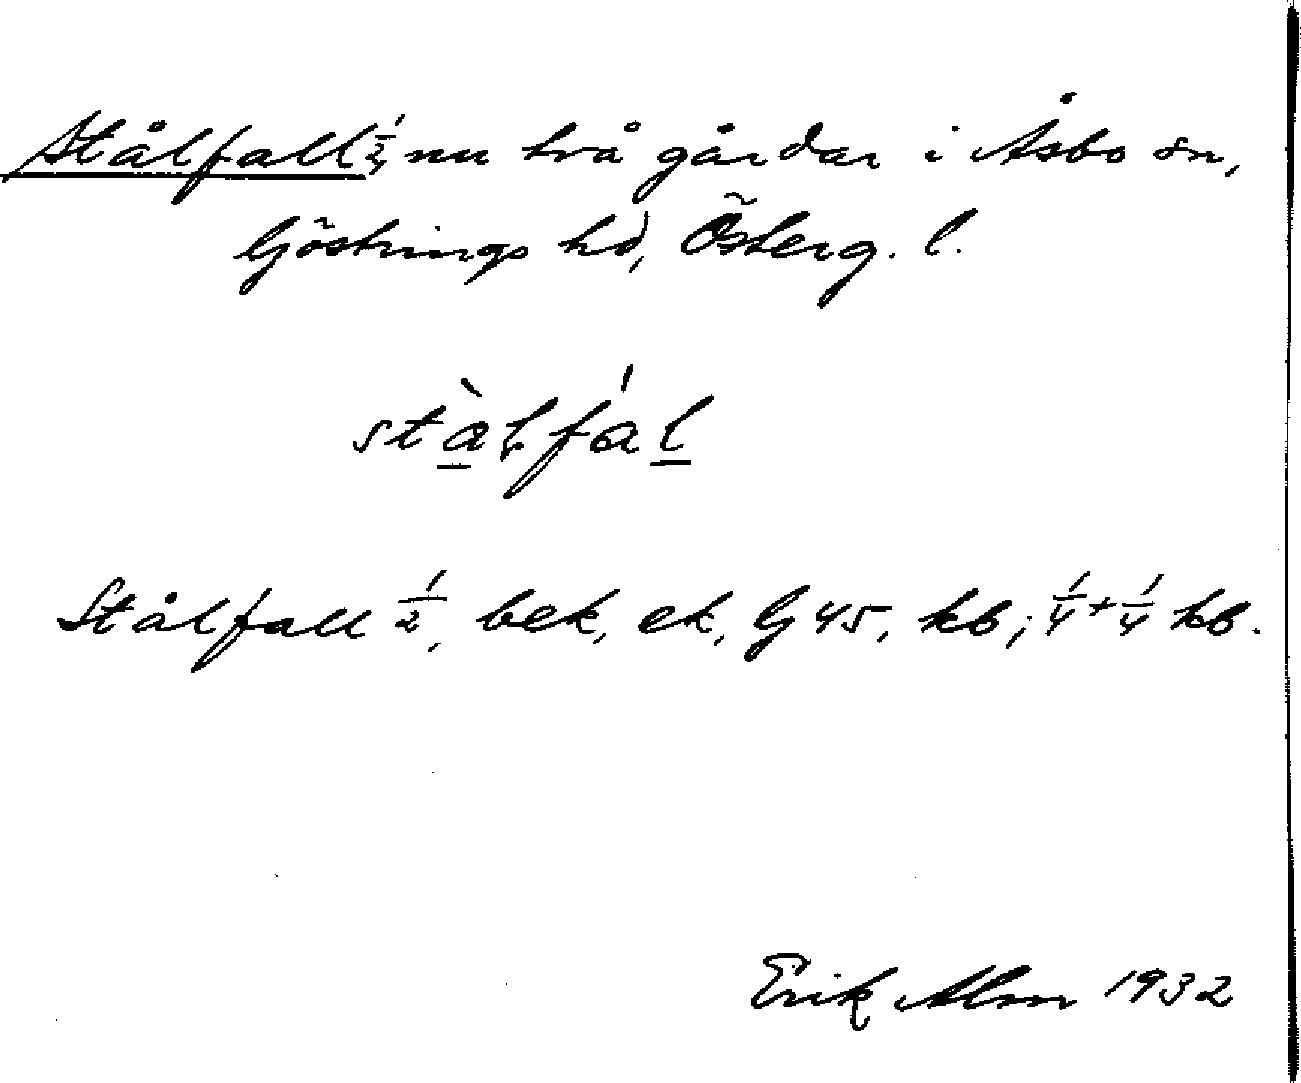 Stålfall ½, nu två gårdar i Åsbo sn,
Göstrings hd, Österg. l.
stàlfál
Stålfall ½, bek, ek, G 45, kb; ¼ + ¼ kb.
Erik Alm 1932